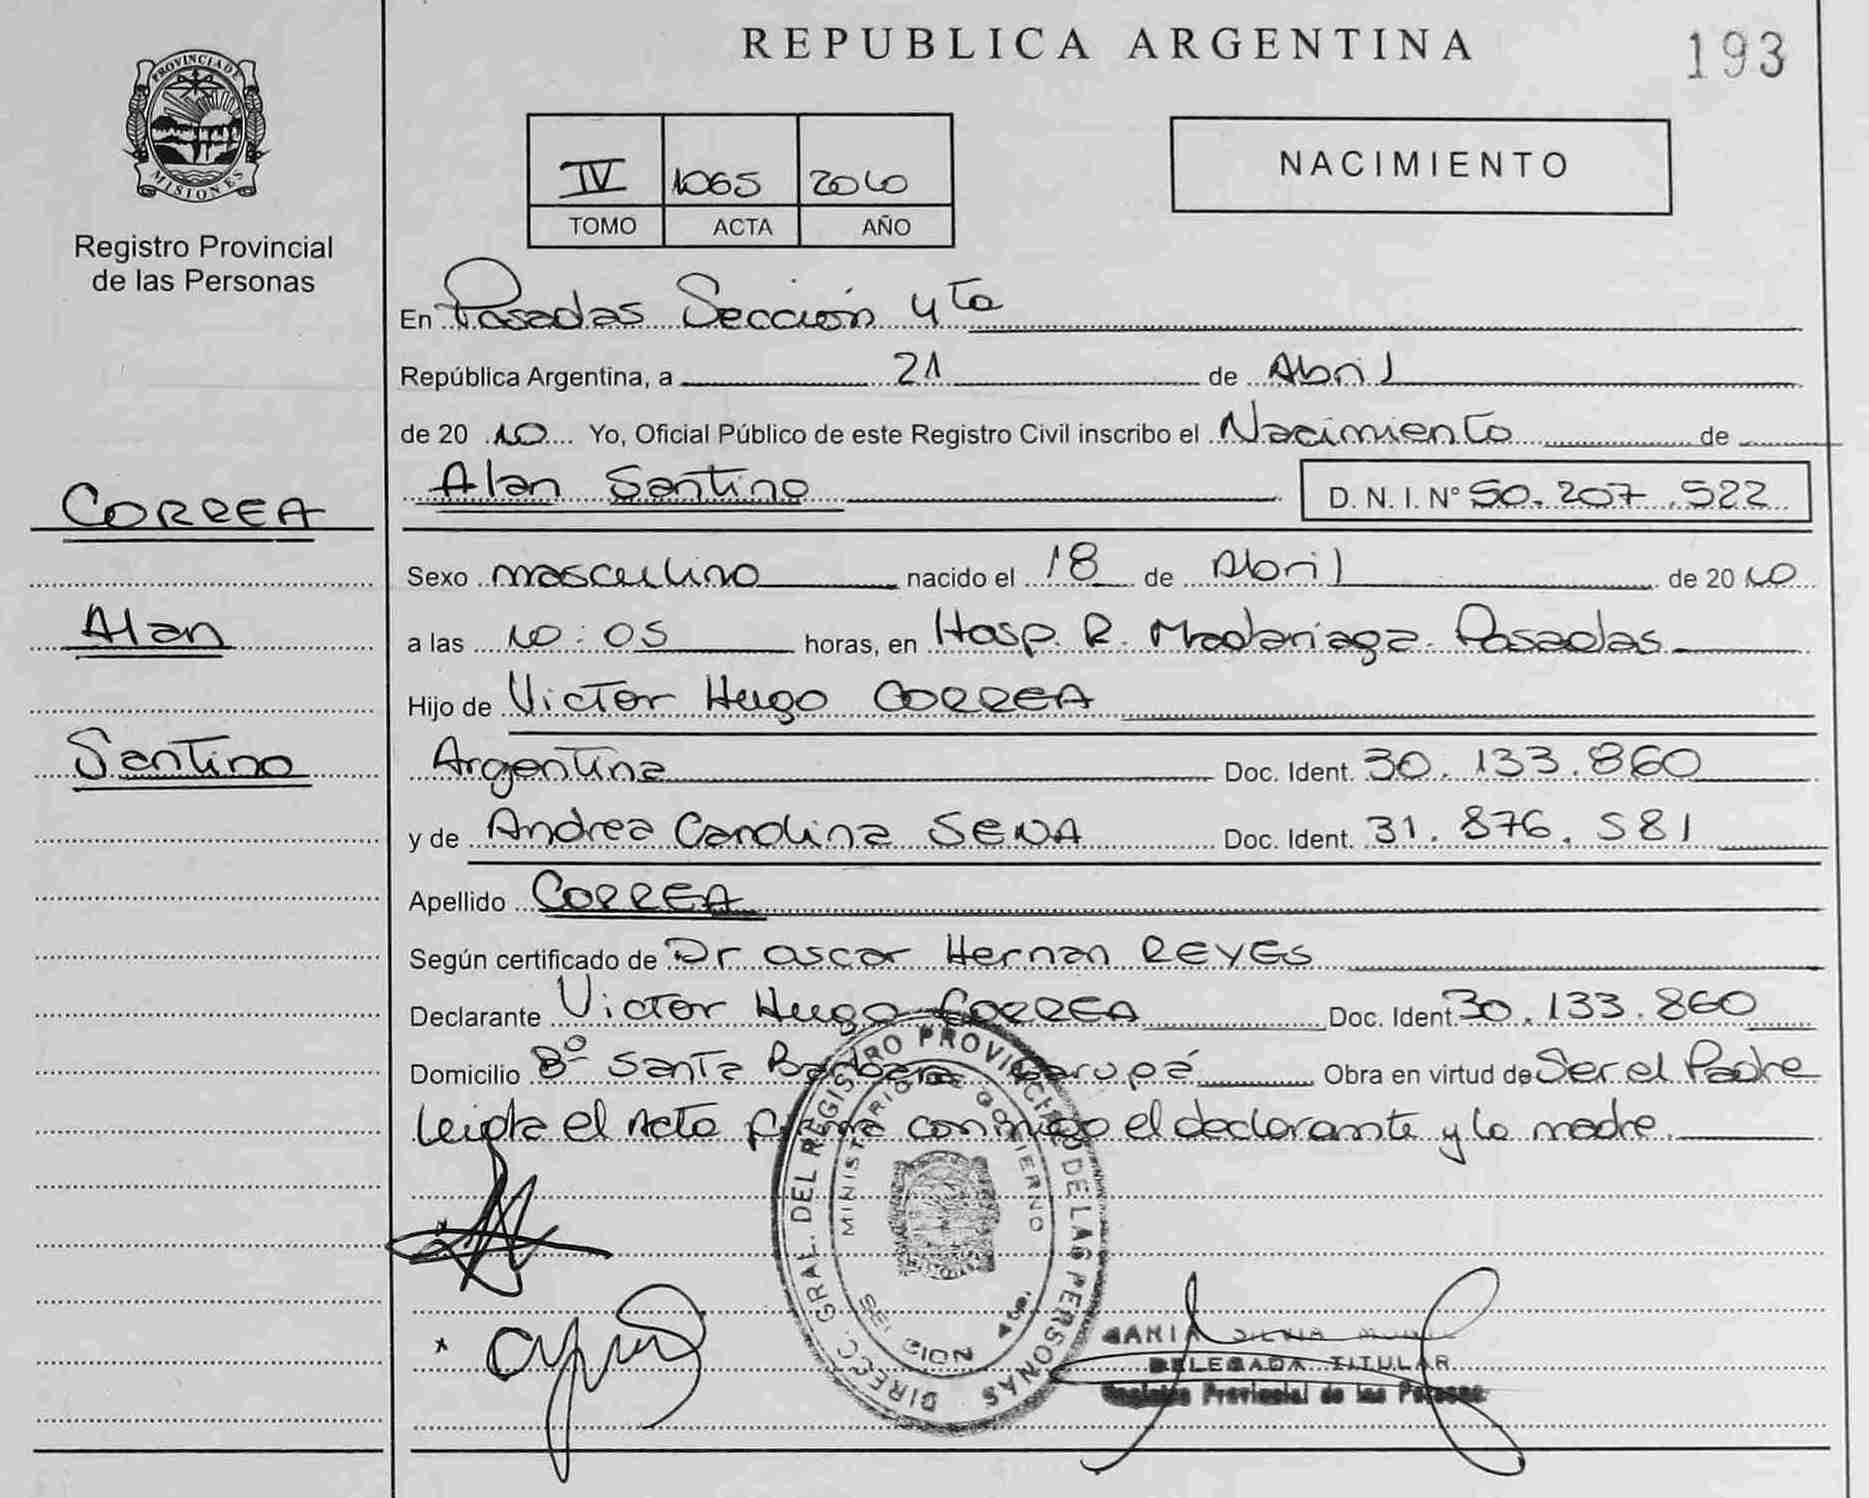 REPUBLICA ARGENTINA
193
PROVINCIA DE
MISIONES
Registro Provincial
de las Personas
IV 1065 2010
TOMO ACTA AÑO
NACIMIENTO
En Posadas Sección 4ta
República Argentina, a 21 de Abril
de 20 10 Yo, Oficial Público de este Registro Civil inscribo el Nacimiento de
Alan Santino D. N. I. N° 50.207.522
CORREA
Alan
Santino
Sexo masculino nacido el 18 de Abril de 20 10
a las 10:05 horas, en Hosp. R. Madariaga. Posadas
Hijo de Victor Hugo CORREA
Argentina Doc. Ident. 30.133.860
y de Andrea Carolina SENA Doc. Ident. 31.876.581
Apellido CORREA
Según certificado de Dr Oscar Hernan REYES
Declarante Victor Hugo CORREA Doc. Ident. 30.133.860
Domicilio Bº Santa Barbara Garupá Obra en virtud de Ser el Padre
Leida el Acta firma conmigo el declarante y la madre.
DIRECC. GRAL. DEL REGISTRO PROVINCIAL DE LAS PERSONAS
MINISTERIO DE GOBIERNO
SILVIA
DELEGADA TITULAR
Registro Provincial de las Personas